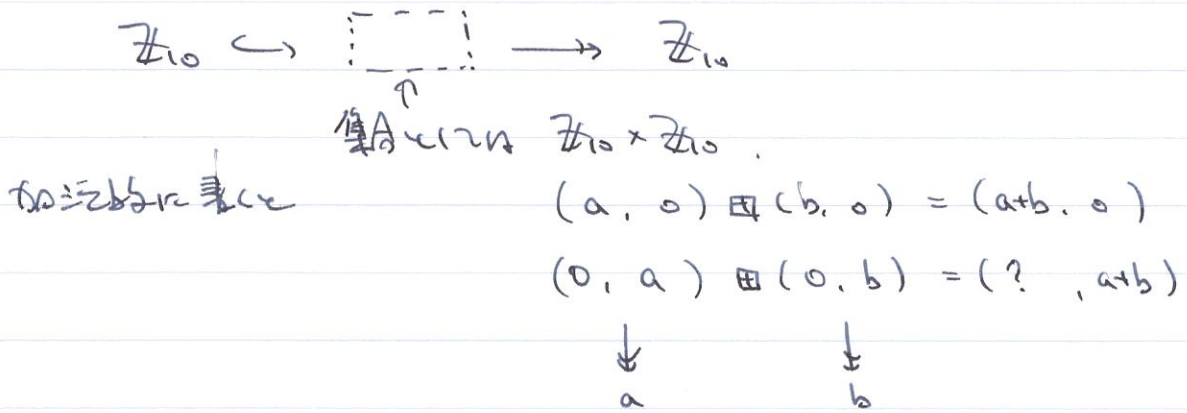 ℤ₁₀ ↪ ↠ ℤ₁₀
↑
集合としては ℤ₁₀ × ℤ₁₀ .
加法的に書くと (a, 0) ⊞ (b, 0) = (a+b, 0)
(0, a) ⊞ (0, b) = (? , a+b)
↓ ↓
a b